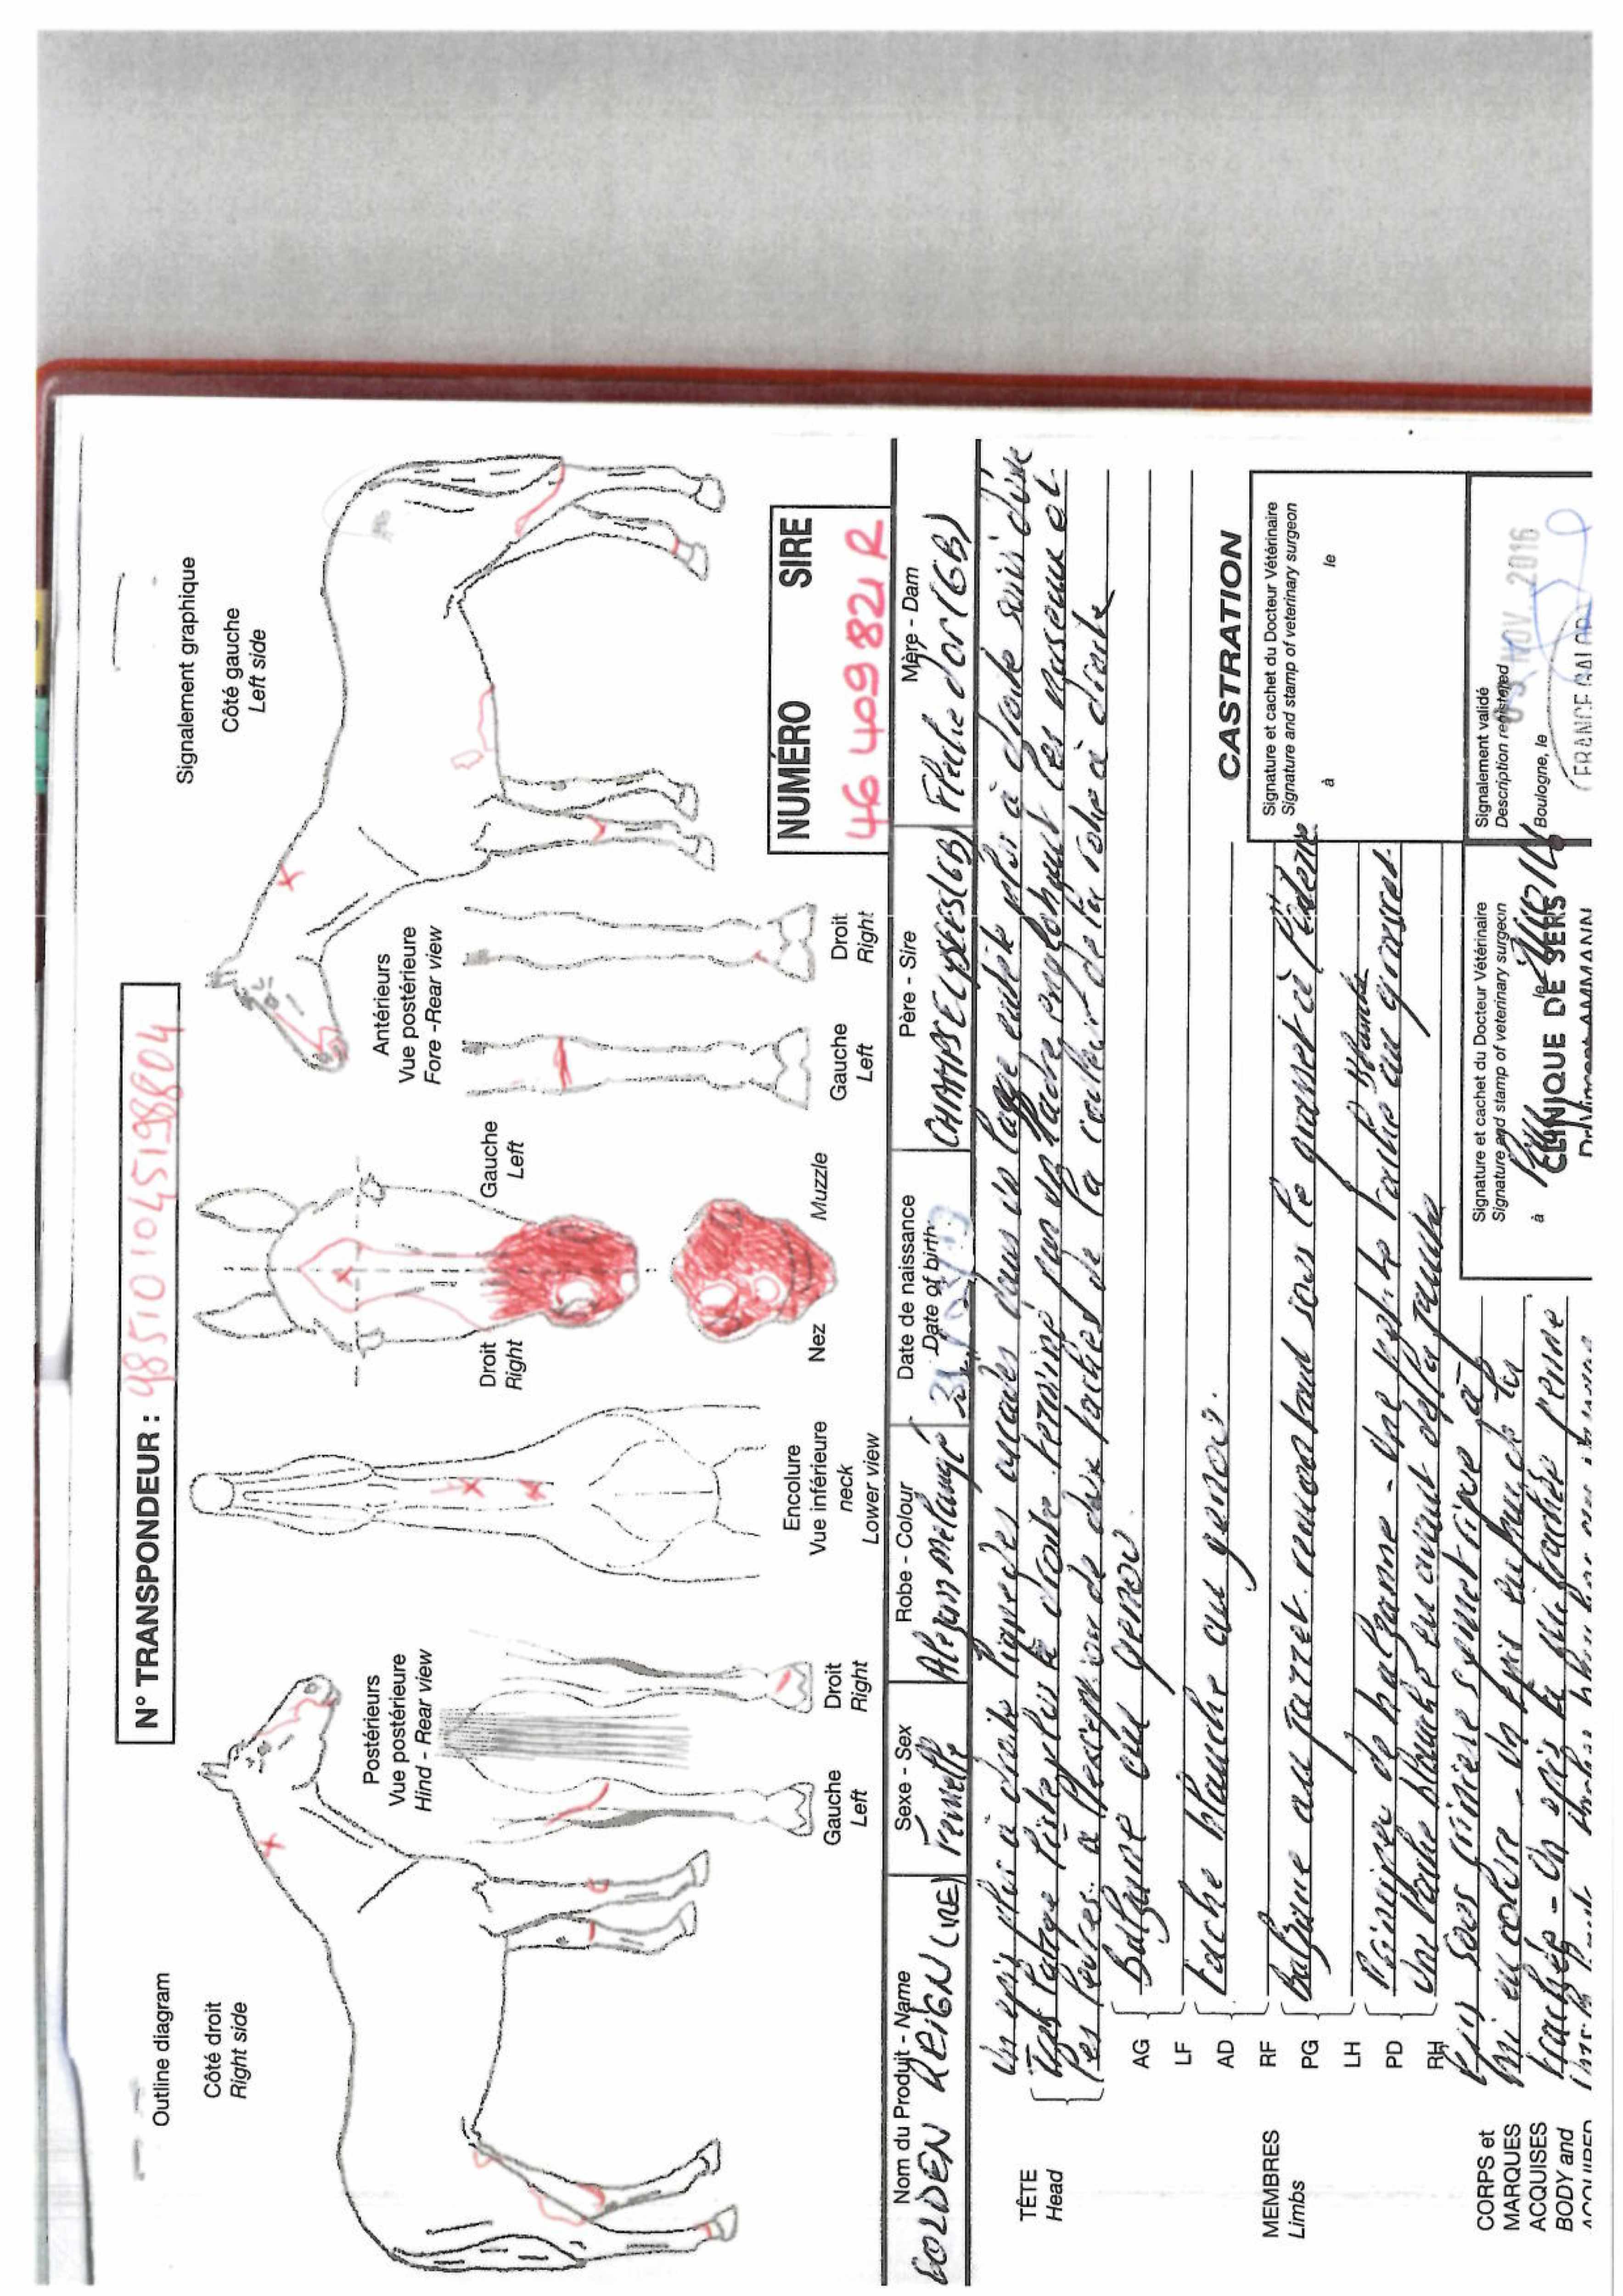 N° TRANSPONDEUR : 985101045198804
Outline diagram
Signalement graphique
Côté droit
Right side
Côté gauche
Left side
Postérieurs
Vue postérieure
Hind - Rear view
Gauche
Left
Droit
Right
Encolure
Vue inférieure
neck
Lower view
Droit
Right
Gauche
Left
Nez
Muzzle
Antérieurs
Vue postérieure
Fore -Rear view
Gauche
Left
Droit
Right
NUMÉRO SIRE
46 409 821 R
Nom du Produit - Name
GOLDEN REIGN (IRE)
Sexe - Sex
Femelle
Robe - Colour
Alezan mélangé
Date de naissance
Date of birth
Père - Sire
CHAMPS ELYSEES (GB)
Mère - Dam
Flèche d'or (GB)
TÊTE
Head
Un épi plus à droite lignes des
très large liste plus à droite terminé sur du ladre englobant les naseaux et
les lèvres à l'exception de deux taches de la couleur de la robe à droite
MEMBRES
Limbs
AG
LF
Balzane au genou
AD
RF
tache blanche au genou.
PG
LH
Balzane au jarret remontant sous le grasset à l'interne
PD
RH
Principe de balzane - Une petite tache blanche au grasset
une tache blanche en avant de la gauche
CASTRATION
Signature et cachet du Docteur Vétérinaire
Signature and stamp of veterinary surgeon
à le
CORPS et
MARQUES
ACQUISES
BODY and
ACQUIRED
Epis sous crinière symétrique à
mi encolure - Un épis en haut de la
trachée - Un épis
Signature et cachet du Docteur Vétérinaire
Signature and stamp of veterinary surgeon
à le
CLINIQUE DE SERS
Signalement validé
Description registered
NOV. 2016
Boulogne, le
FRANCE GALOP